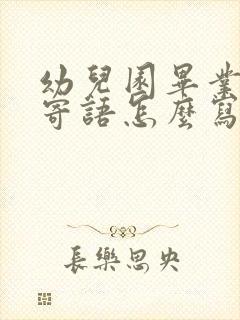 幼兒園畢業
寄語怎麼寫
長樂思央